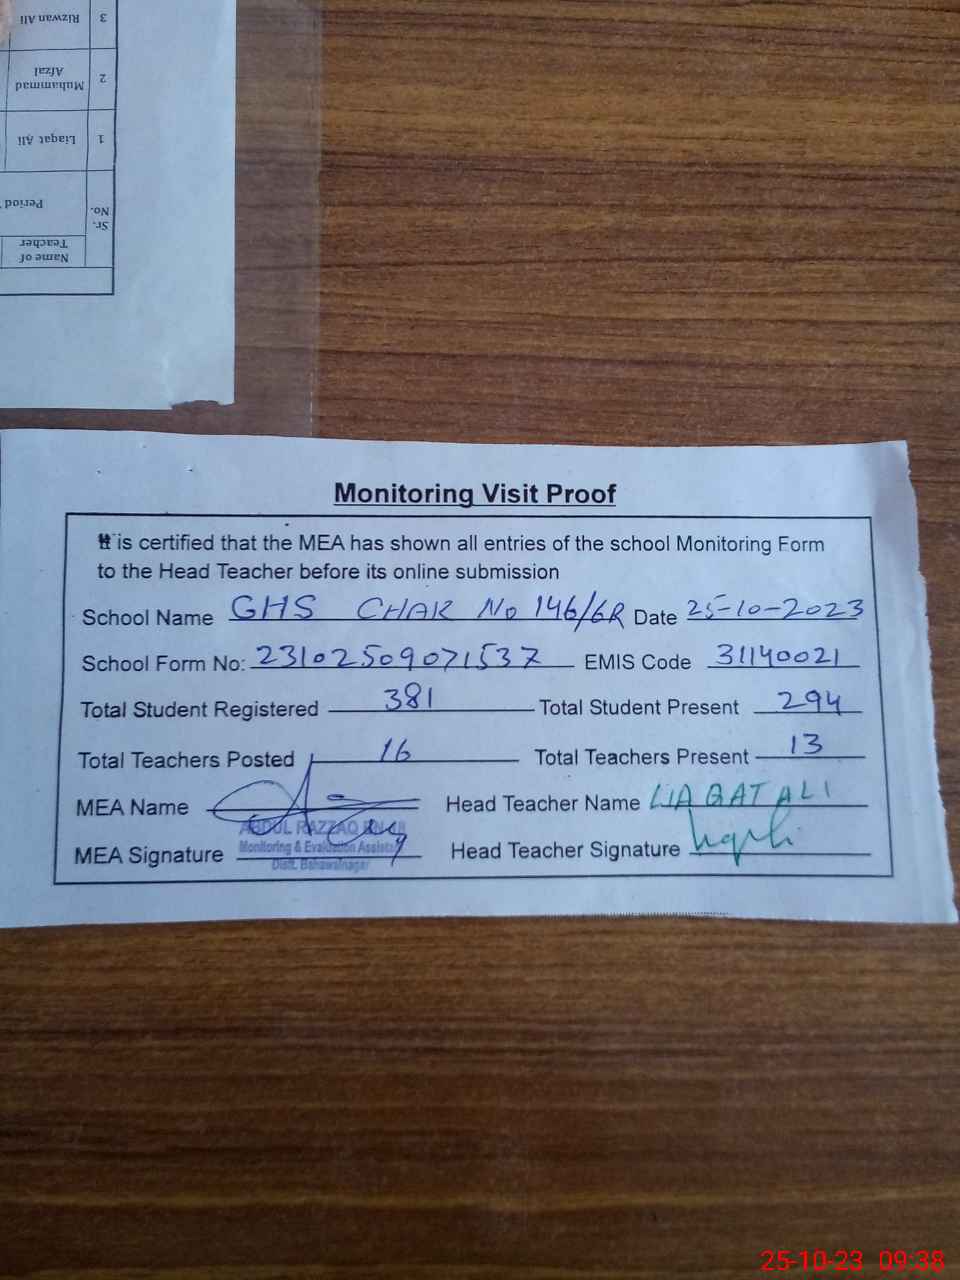 3 Rizwan Ali
2 Muhammad Afzal
1 Liaqat Ali
Sr. No.
Period
Name of Teacher
Monitoring Visit Proof
It is certified that the MEA has shown all entries of the school Monitoring Form
to the Head Teacher before its online submission
School Name GHS CHAK No 146/6R Date 25-10-2023
School Form No: 23102509071537 EMIS Code 31140021
Total Student Registered 381 Total Student Present 294
Total Teachers Posted 16 Total Teachers Present 13
MEA Name Head Teacher Name LIAQAT ALI
ABDUL RAZZAQ
MEA Signature Monitoring & Evaluation Assistant Head Teacher Signature
Distt. Bahawalnagar
25-10-23 09:38